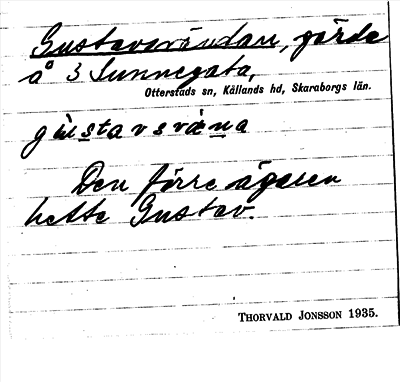 Gustavsvändan, gärde
å 3 Sunnegata,
Otterstads sn, Kållands hd, Skaraborgs län.
Den förre ägaren
hette Gustav.
THORVALD JONSSON 1935.